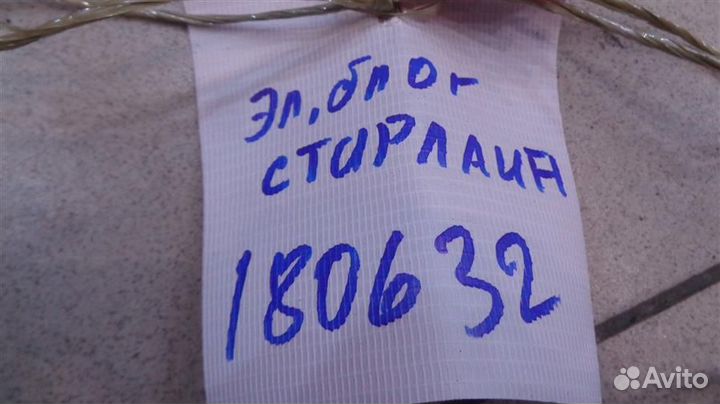 эл, блок
СТАРЛАЙН
180632
Avito